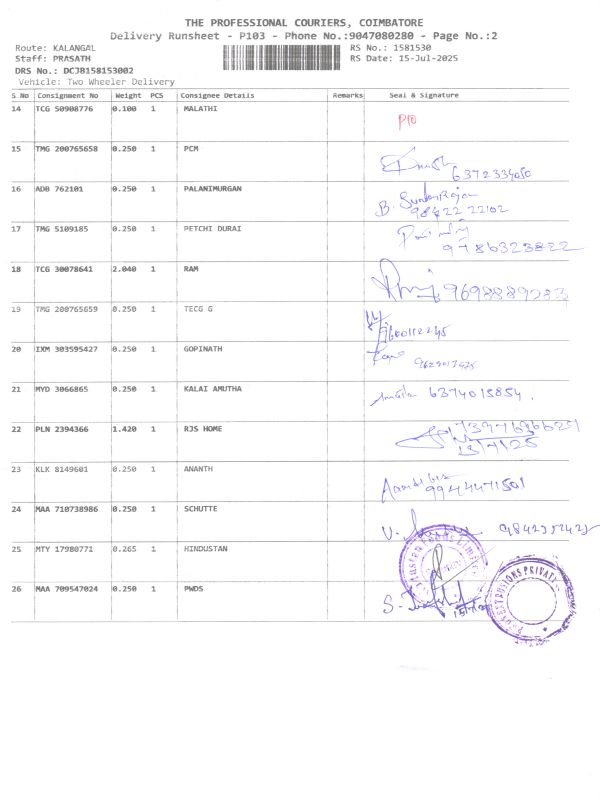 THE PROFESSIONAL COURIERS, COIMBATORE
Delivery Runsheet - P103 - Phone No.:9047080280 - Page No.:2
Route: KALANGAL
RS No.: 1581530
Staff: PRASATH
RS Date: 15-Jul-2025
DRS No.: DCJB158153002
Vehicle: Two Wheeler Delivery
S No Consignment No Weight PCS Consignee Details Remarks Seal & Signature
14 TCG 50908776 0.100 1 MALATHI
15 TMG 200765658 0.250 1 PCM
6372334050
16 ADB 762101 0.250 1 PALANIMURGAN
B. SundarRajan
98422 22102
17 TMG 5109185 0.250 1 PETCHI DURAI
9786323822
18 TCG 30078641 2.040 1 RAM
9698889283
19 TMG 200765659 0.250 1 TECG G
9600112245
20 IXM 303595427 0.250 1 GOPINATH
21 MYD 3066865 0.250 1 KALAI AMUTHA
6374015854.
22 PLN 2394366 1.420 1 RJS HOME
15/7/25
23 KLK 8149601 0.250 1 ANANTH
9944471501
24 MAA 710738986 0.250 1 SCHUTTE
25 MTY 17980771 0.265 1 HINDUSTAN
26 MAA 709547024 0.250 1 PWDS